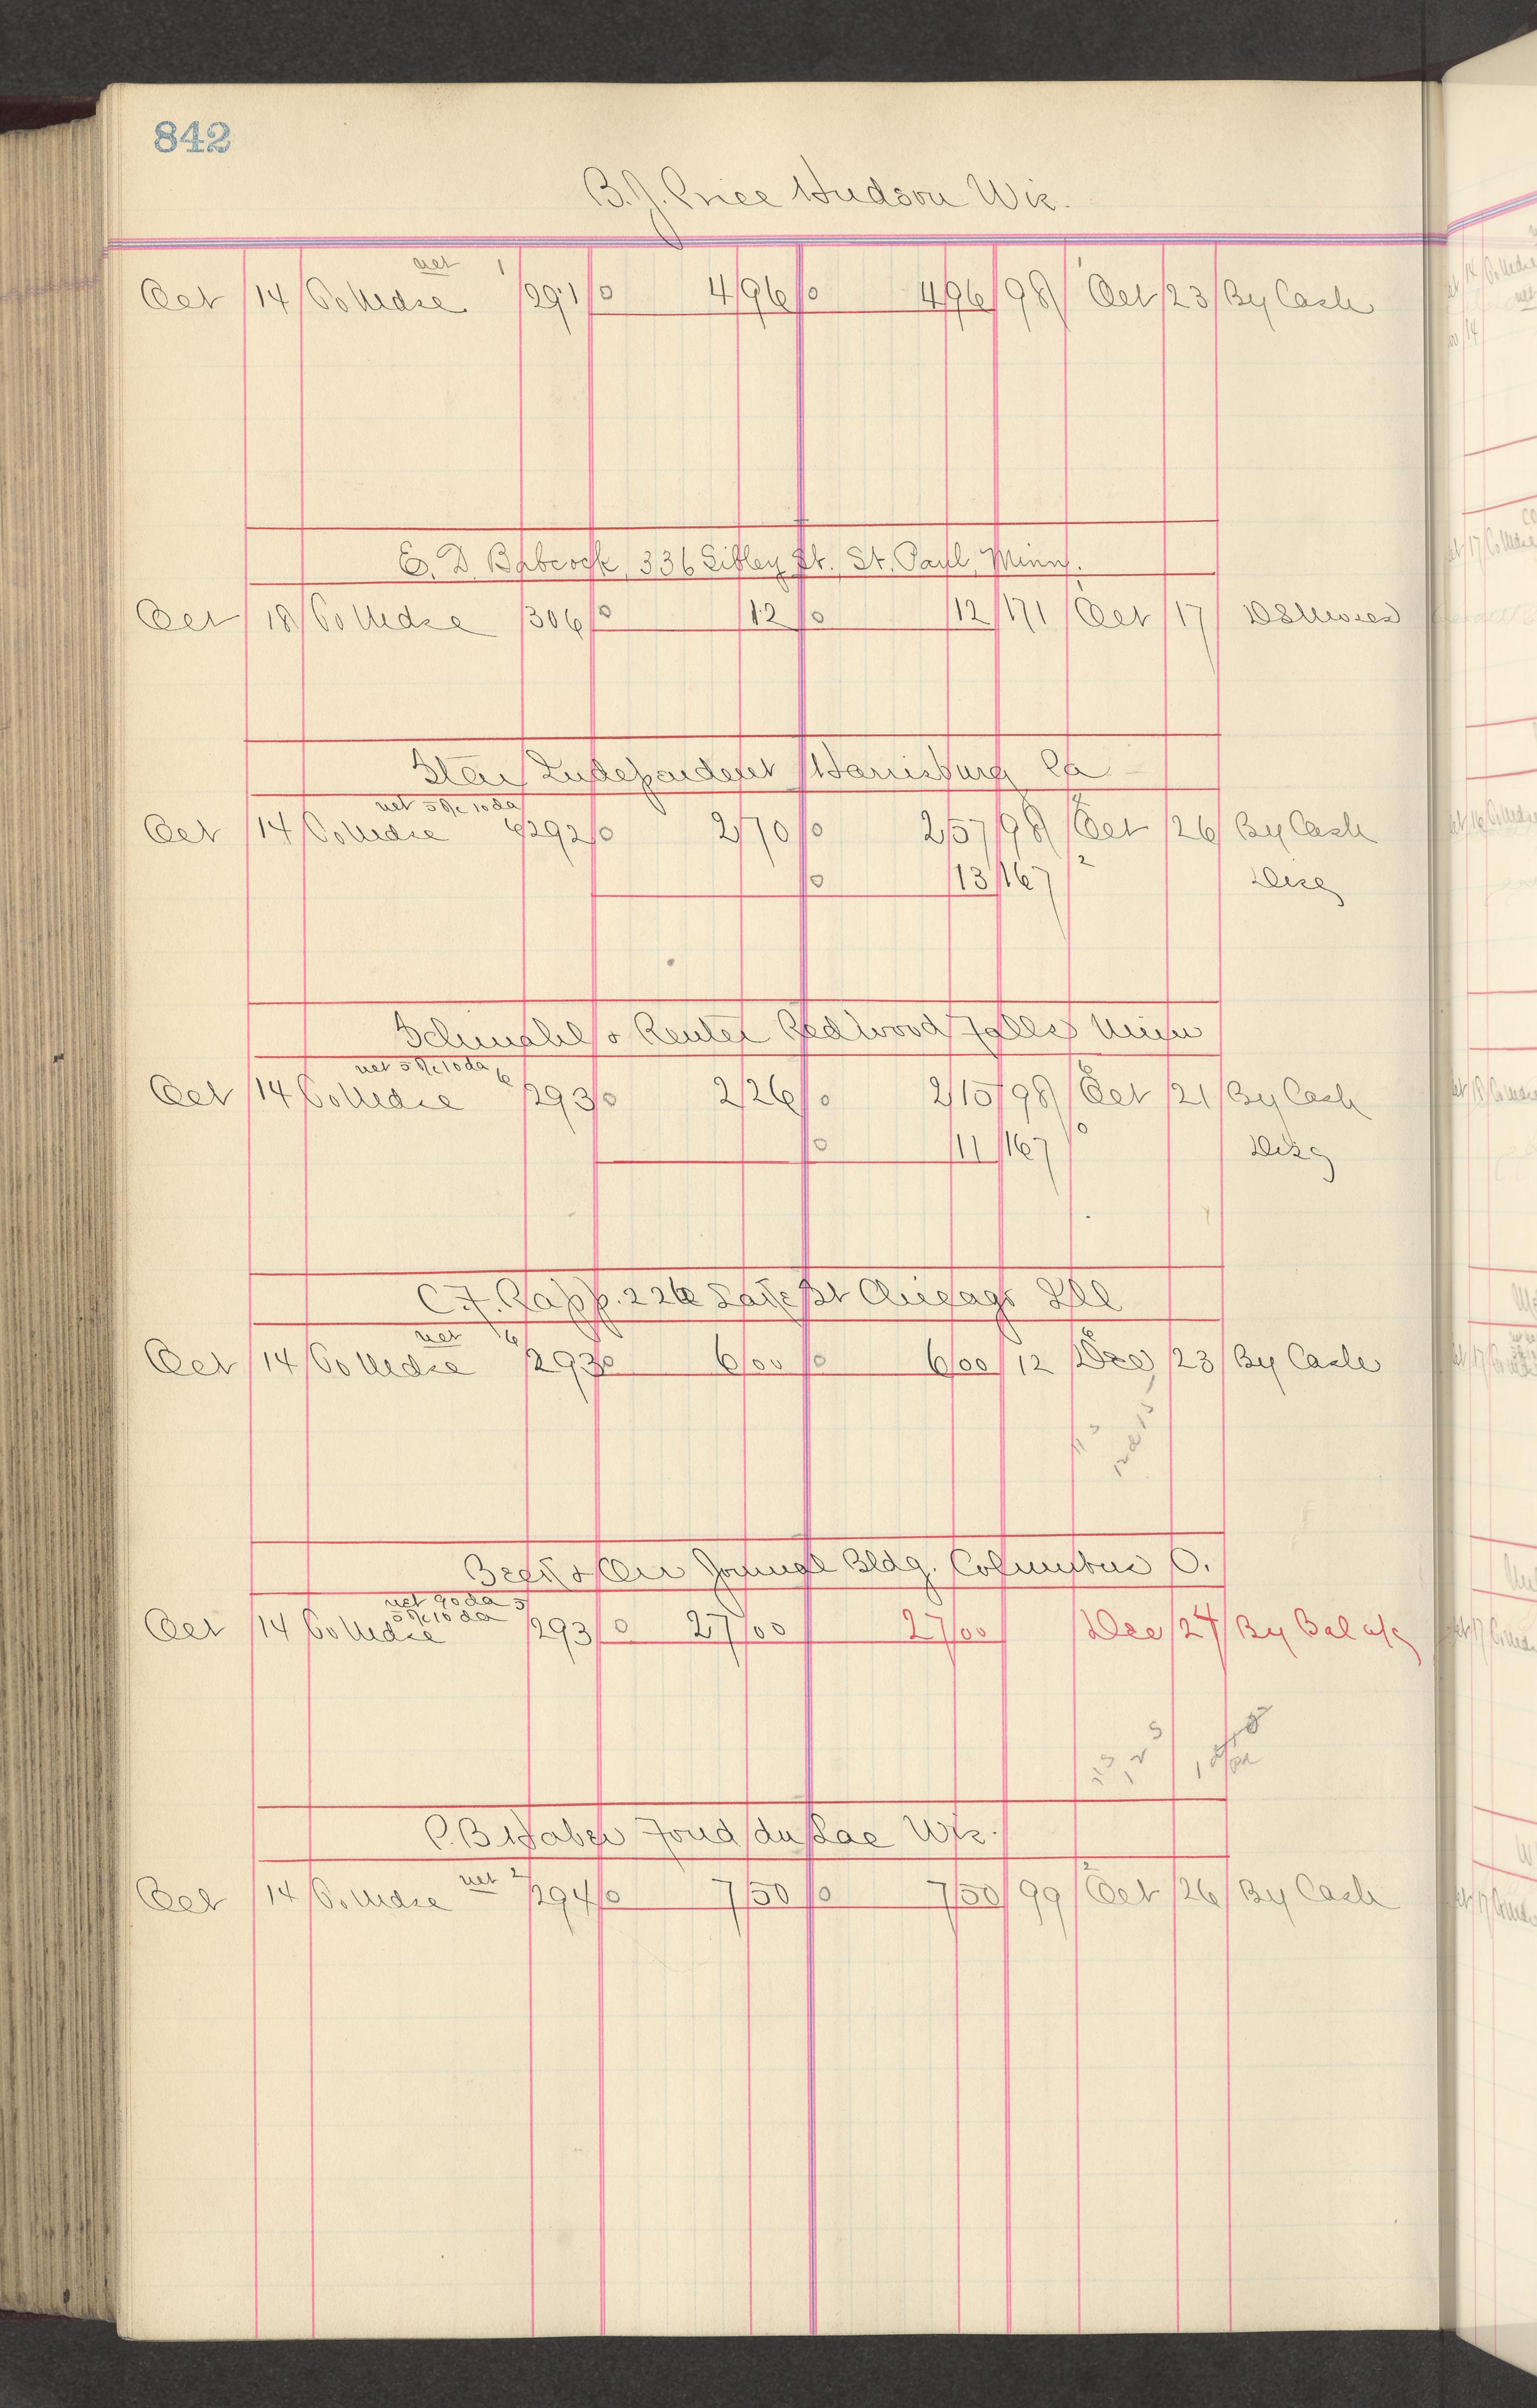 842
B.J. Price Hudson Wis.
net 1
Oct 14 To Mdse 291 0 4 96 0 4 96 98 Oct 23 By Cash
E. D. Babcock, 336 Sibley St., St. Paul, Minn.
Oct 18 To Mdse 306 0 12 0 12 171 Oct 17
Star Independent Harrisburg Pa
net 5% 10 da
Oct 14 To Mdse 6 292 0 2 70 0 2 57 98 Oct 26 By Cash
0 13 167 2 Disc
Schmahl & Reuter Redwood Falls Minn
net 5% 10 da 6
Oct 14 To Mdse 293 0 2 26 0 2 15 98 Oct 21 By Cash
0 11 167 0 Disc
C.F. Rapp. 226 Chicago Ill
net 6
Oct 14 To Mdse 293 0 6 00 0 6 00 12 Dec 23 By Cash
& Orr Journal Bldg. Columbus O.
net 90 da 5
5% 10 da
Oct 14 To Mdse 293 0 27 00 27 00 Dec 24 By Bal a/c
P.B. Haber Fond du Lac Wis.
net 2
Oct 14 To Mdse 294 0 7 50 0 7 50 99 Oct 26 By Cash